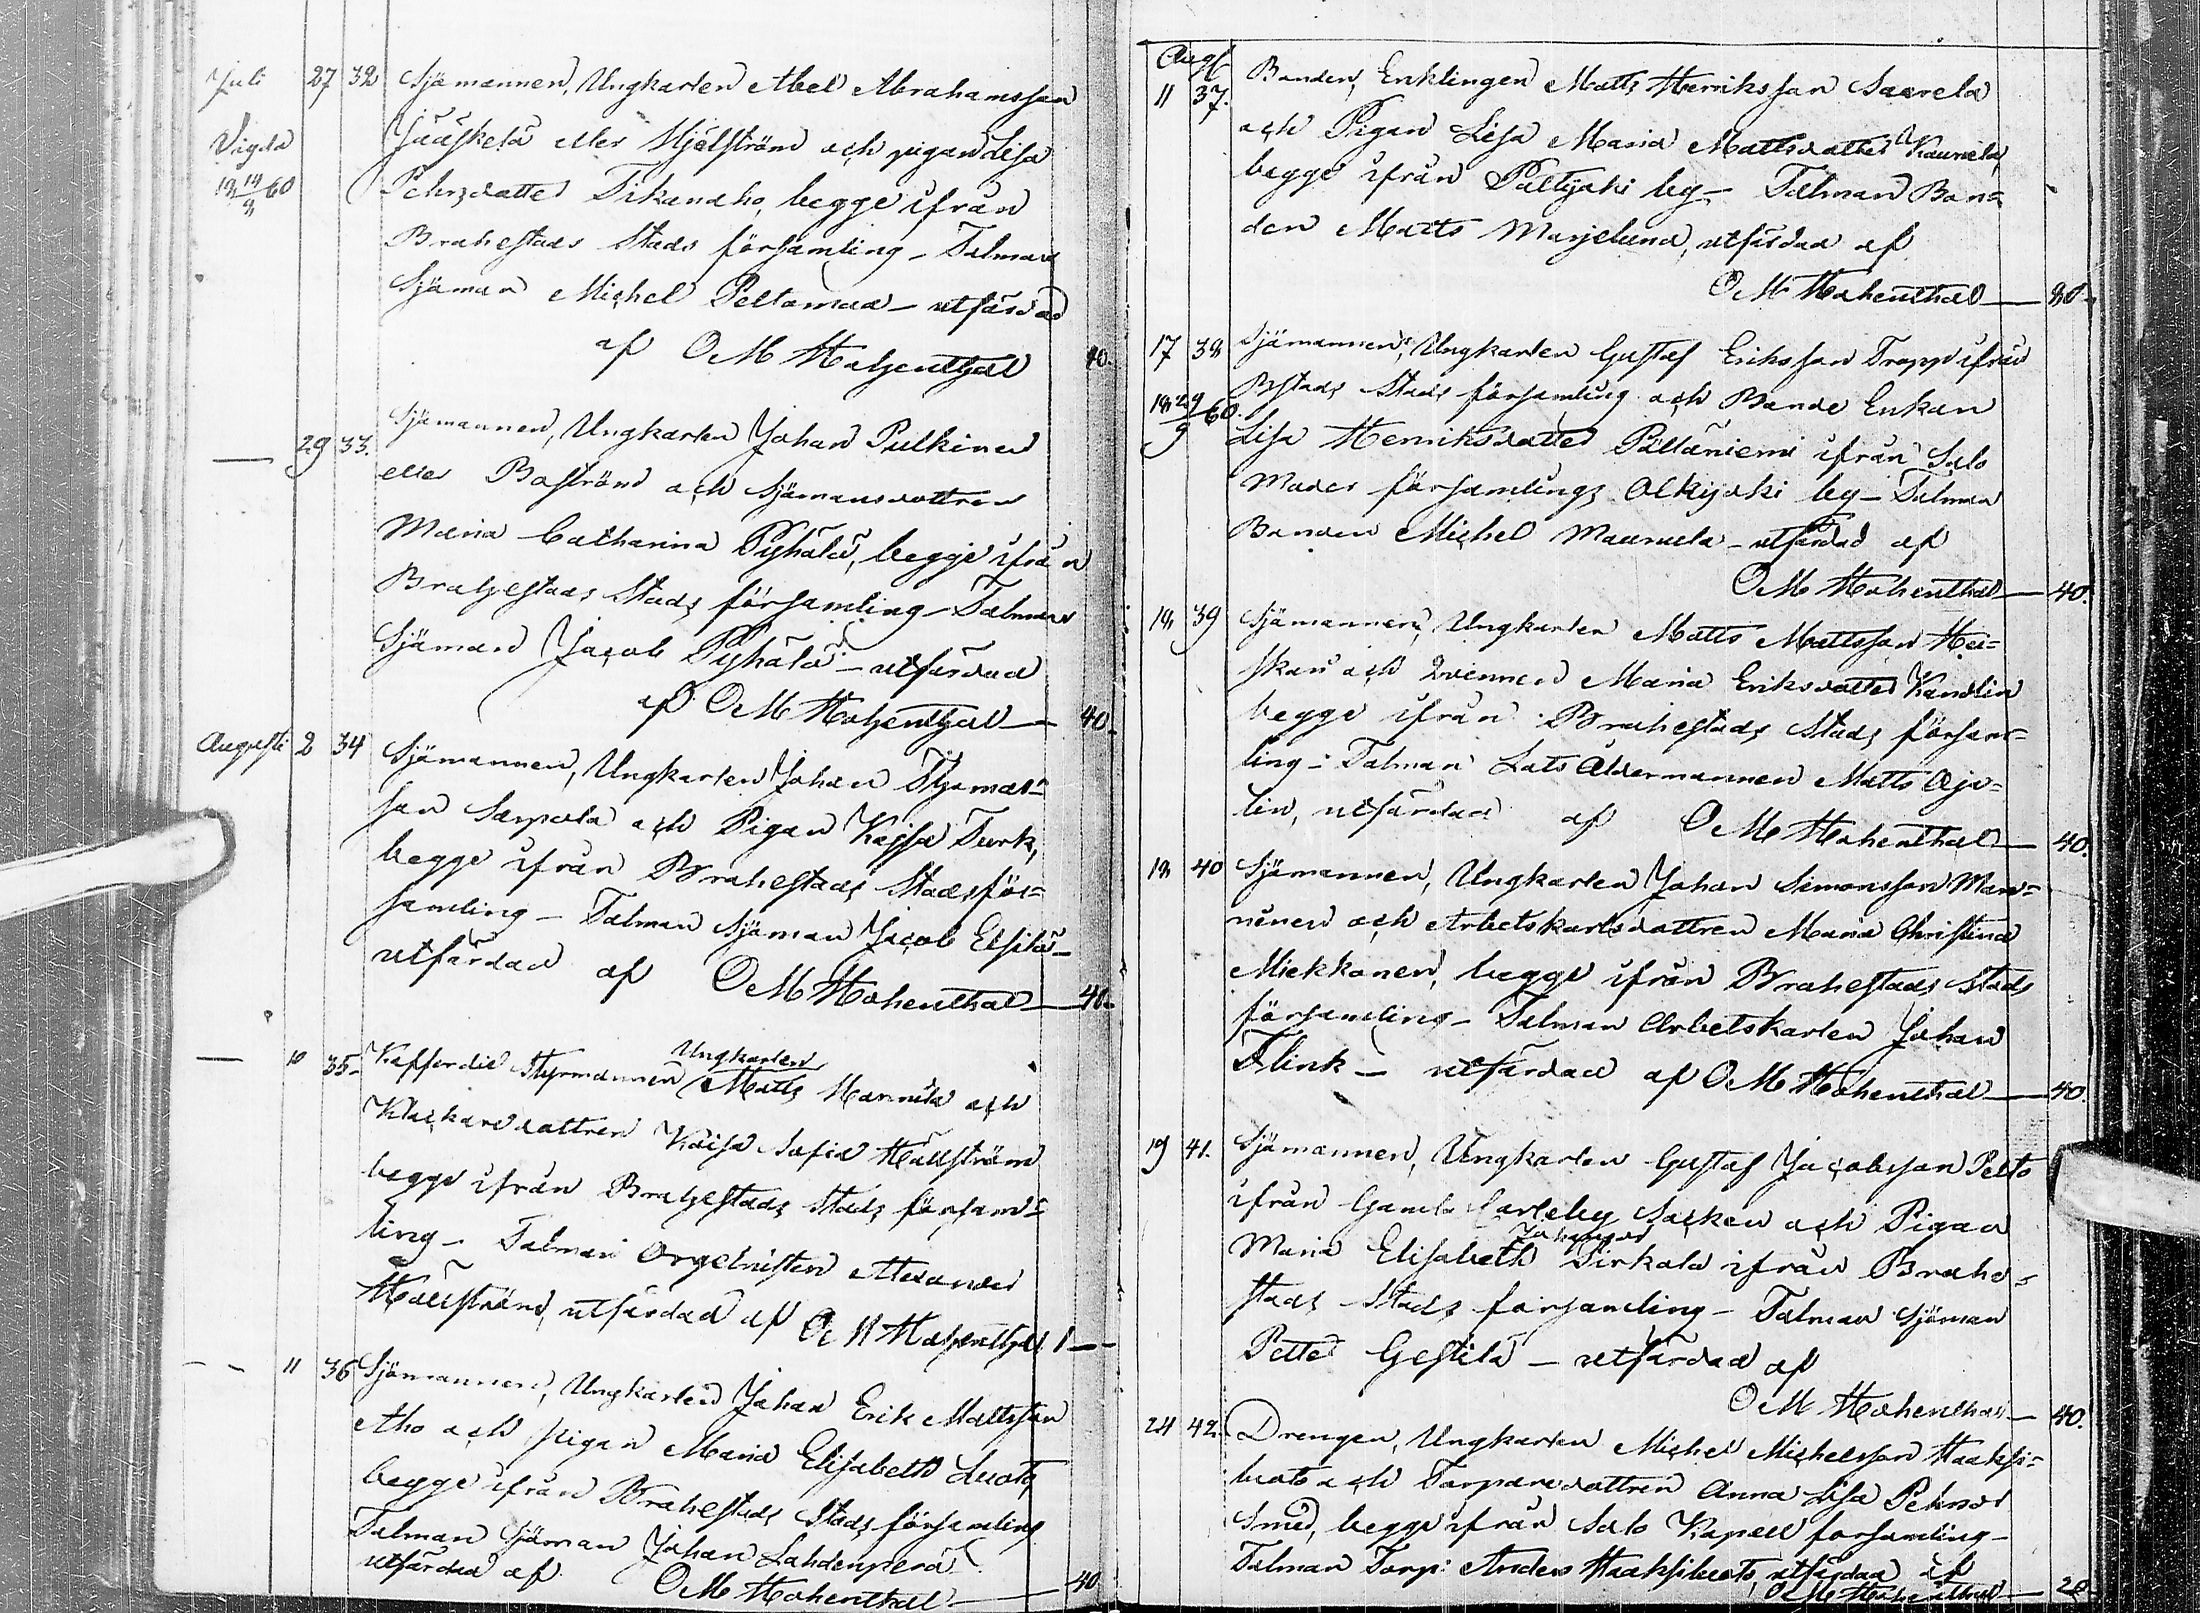 Juli 27 32 Sjömannen, Ungkarlen Abel Abrahamsson
Vigda Jääskelä eller Hjelström och pigan Lisa
18 14/9 60 Pehrsdotter Tikanaho, begge ifrån
Brahestads Stads församling – Talman
Sjöman Michel Peltomaa – utfärdad
af O M Hohenthal 40.
— 29 33. Sjömannen, Ungkarlen Johan Pulkinen
eller Boström och Sjömansdottren
Maria Catharina Pyhälä, begge ifrån
Brahestads Stads församling – Talman
Sjöman Jacob Pyhälä – utfärdad
af O M Hohenthal — 40.
Augusti 2 34 Sjömannen, Ungkarlen Johan Thomas=
son Sarpola och Pigan Kajsa Turk,
begge ifrån Brahestads Stadsför=
samling – Talman Sjöman Jacob Elsilä –
utfärdad af O M Hohenthal — 40.
— 10 35. Kofferdie Styrmannen Ungkarlen Matts Mannila och
Klockaredottren Kaisa Sofia Hällström
begge ifrån Brahestads Stads försam=
ling – Talman Orgelnisten Alexander
Hällström, utfärdad af O M Hohenthal 1 —
— 11 36 Sjömannen, Ungkarlen Johan Erik Mattsson
Aho och pigan Maria Elisabeth Luoto,
begge ifrån Brahestads Stads församling
Talman Sjöman Johan Lahdenperä
utfärdad af O M Hohenthal — 40
Aug
11 37. Bonden, Enklingen Matts Henriksson Saarela
och Pigan Lisa Maria Mattsdotter Kaurela,
begge ifrån Pattijoki by – Talman Bon=
den Matts Marjelund, utfärdad af
O M Hohenthal — 80.
17 38 Sjömannen, Ungkarlen Gustaf Eriksson Tropp ifrån
18 29/9 60. Bstads Stads församling och Bonde Enkan
Lisa Henriksdotter Pältäniemi ifrån Salo
Moder församlings Olkijoki by – Talman
Bonden Michel Maunula – utfärdad af
O M Hohenthal — 40.
18 39 Sjömannen, Ungkarlen Matts Mattsson Hei=
skari och Qvinnen Maria Eriksdotter Kandlin
begge ifrån Brahestads Stads försam=
ling – Talman Lots Åldermannen Matts Oja=
lin, utfärdad af O M Hohenthal — 40.
18 40 Sjömannen, Ungkarlen Johan Simonsson Man=
ninen och Arbetskarlsdottren Maria Christina
Miekkonen, begge ifrån Brahestads Stads
församling – Talman Arbetskarlen Johan
Flink – utfärdad af O M Hohenthal — 40.
19 41. Sjömannen, Ungkarlen Gustaf Jacobsson Pelto
ifrån Gamla Carleby Socken och Pigan
Maria Elisabeth Johansd Sirkala ifrån Brahe=
stads Stads församling – Talman Sjöman
Petter Gestilä – utfärdad af
O M Hohenthal — 40.
24 42. Drengen, Ungkarlen Michel Michelsson Haaksi=
luoto och Torparedottren Anna Lisa Pehrsd
Smed, begge ifrån Salo Kapell församling –
Talman Torp: Anders Haaksiluoto, utfärdad af
O M Hohenthal — 20